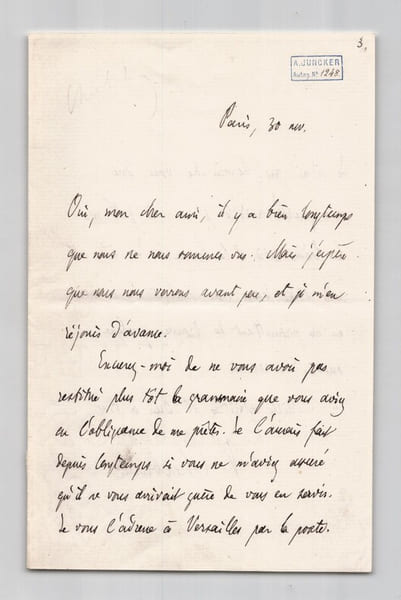 3.
A. JUNCKER
Autog. N° 1248
Paris, 30 nov.
Oui, mon cher ami, il y a bien longtemps
que nous ne nous sommes vus. Mais j'espère
que nous nous verrons avant peu, et je m'en
réjouis d'avance.
Excusez-moi de ne vous avoir pas
restitué plus tôt la grammaire que vous aviez
eu l'obligeance de me prêter. Je l'aurais fait
depuis longtemps si vous ne m'aviez assuré
qu'il ne vous arrivait guère de vous en servir.
Je vous l'adresse à Versailles par la poste.